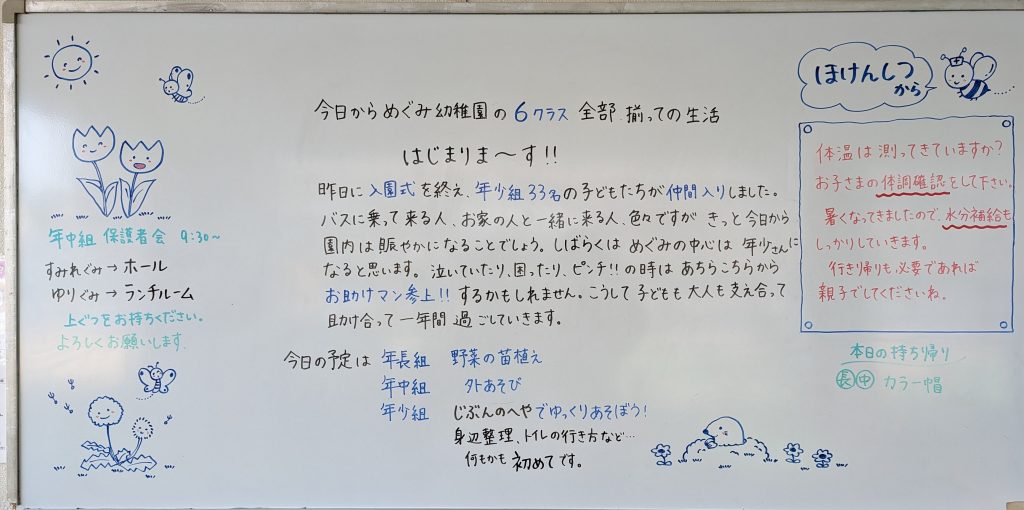 今日からめぐみ幼稚園の6クラス全部揃っての生活
はじまりま〜す!!
昨日に入園式を終え、年少組33名の子どもたちが仲間入りしました。
バスに乗って来る人、お家の人と一緒に来る人、色々ですが きっと今日から
園内は賑やかになることでしょう。しばらくは めぐみの中心は 年少さんに
なると思います。泣いていたり、困ったり、ピンチ!!の時は あちらこちらから
お助けマン参上!! するかもしれません。こうして子どもも大人も支え合って
助け合って一年間過ごしていきます。
今日の予定は 年長組 野菜の苗植え
年中組 外あそび
年少組 じぶんのへやでゆっくりあそぼう!
身辺整理、トイレの行き方など…
何もかも初めてです。
年中組 保護者会 9:30~
すみれぐみ→ホール
ゆりぐみ→ランチルーム
上ぐつをお持ちください。
よろしくお願いします
ほけんしつ
から
体温は測ってきていますか?
お子さまの体調確認をして下さい。
暑くなってきましたので、水分補給も
しっかりしていきます。
行き帰りも必要であれば
親子でしてくださいね。
本日の持ち帰り
長 中 カラー帽